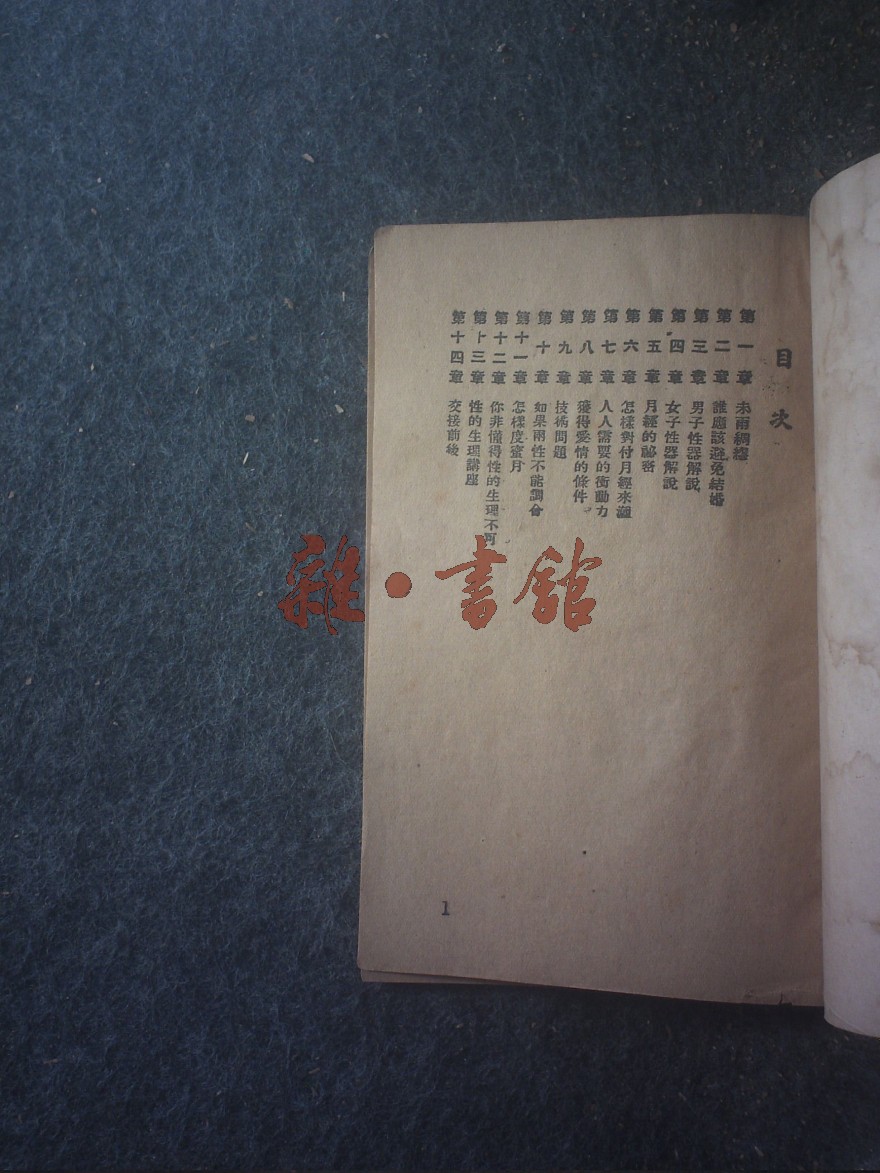 目次
第一章 未雨綢繆
第二章 誰應該避免結婚
第三章 男子性器解說
第四章 女子性器解說
第五章 月經的祕密
第六章 怎樣對付月經來潮
第七章 人人需要的衝動力
第八章 獲得愛情的條件
第九章 技術問題
第十章 如果兩性不能調合
第十一章 怎樣度蜜月
第十二章 你非懂得性的生理不可
第十三章 性的生理講座
第十四章 交接前後
1
雜·書館